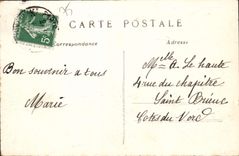 CARTE POSTALE
Correspondance
Adresse
5
Bon souvenir a tous
Marie
Mlle A. Le haute
4 rue du chapitre
Saint Brieuc
Cotes du Nord